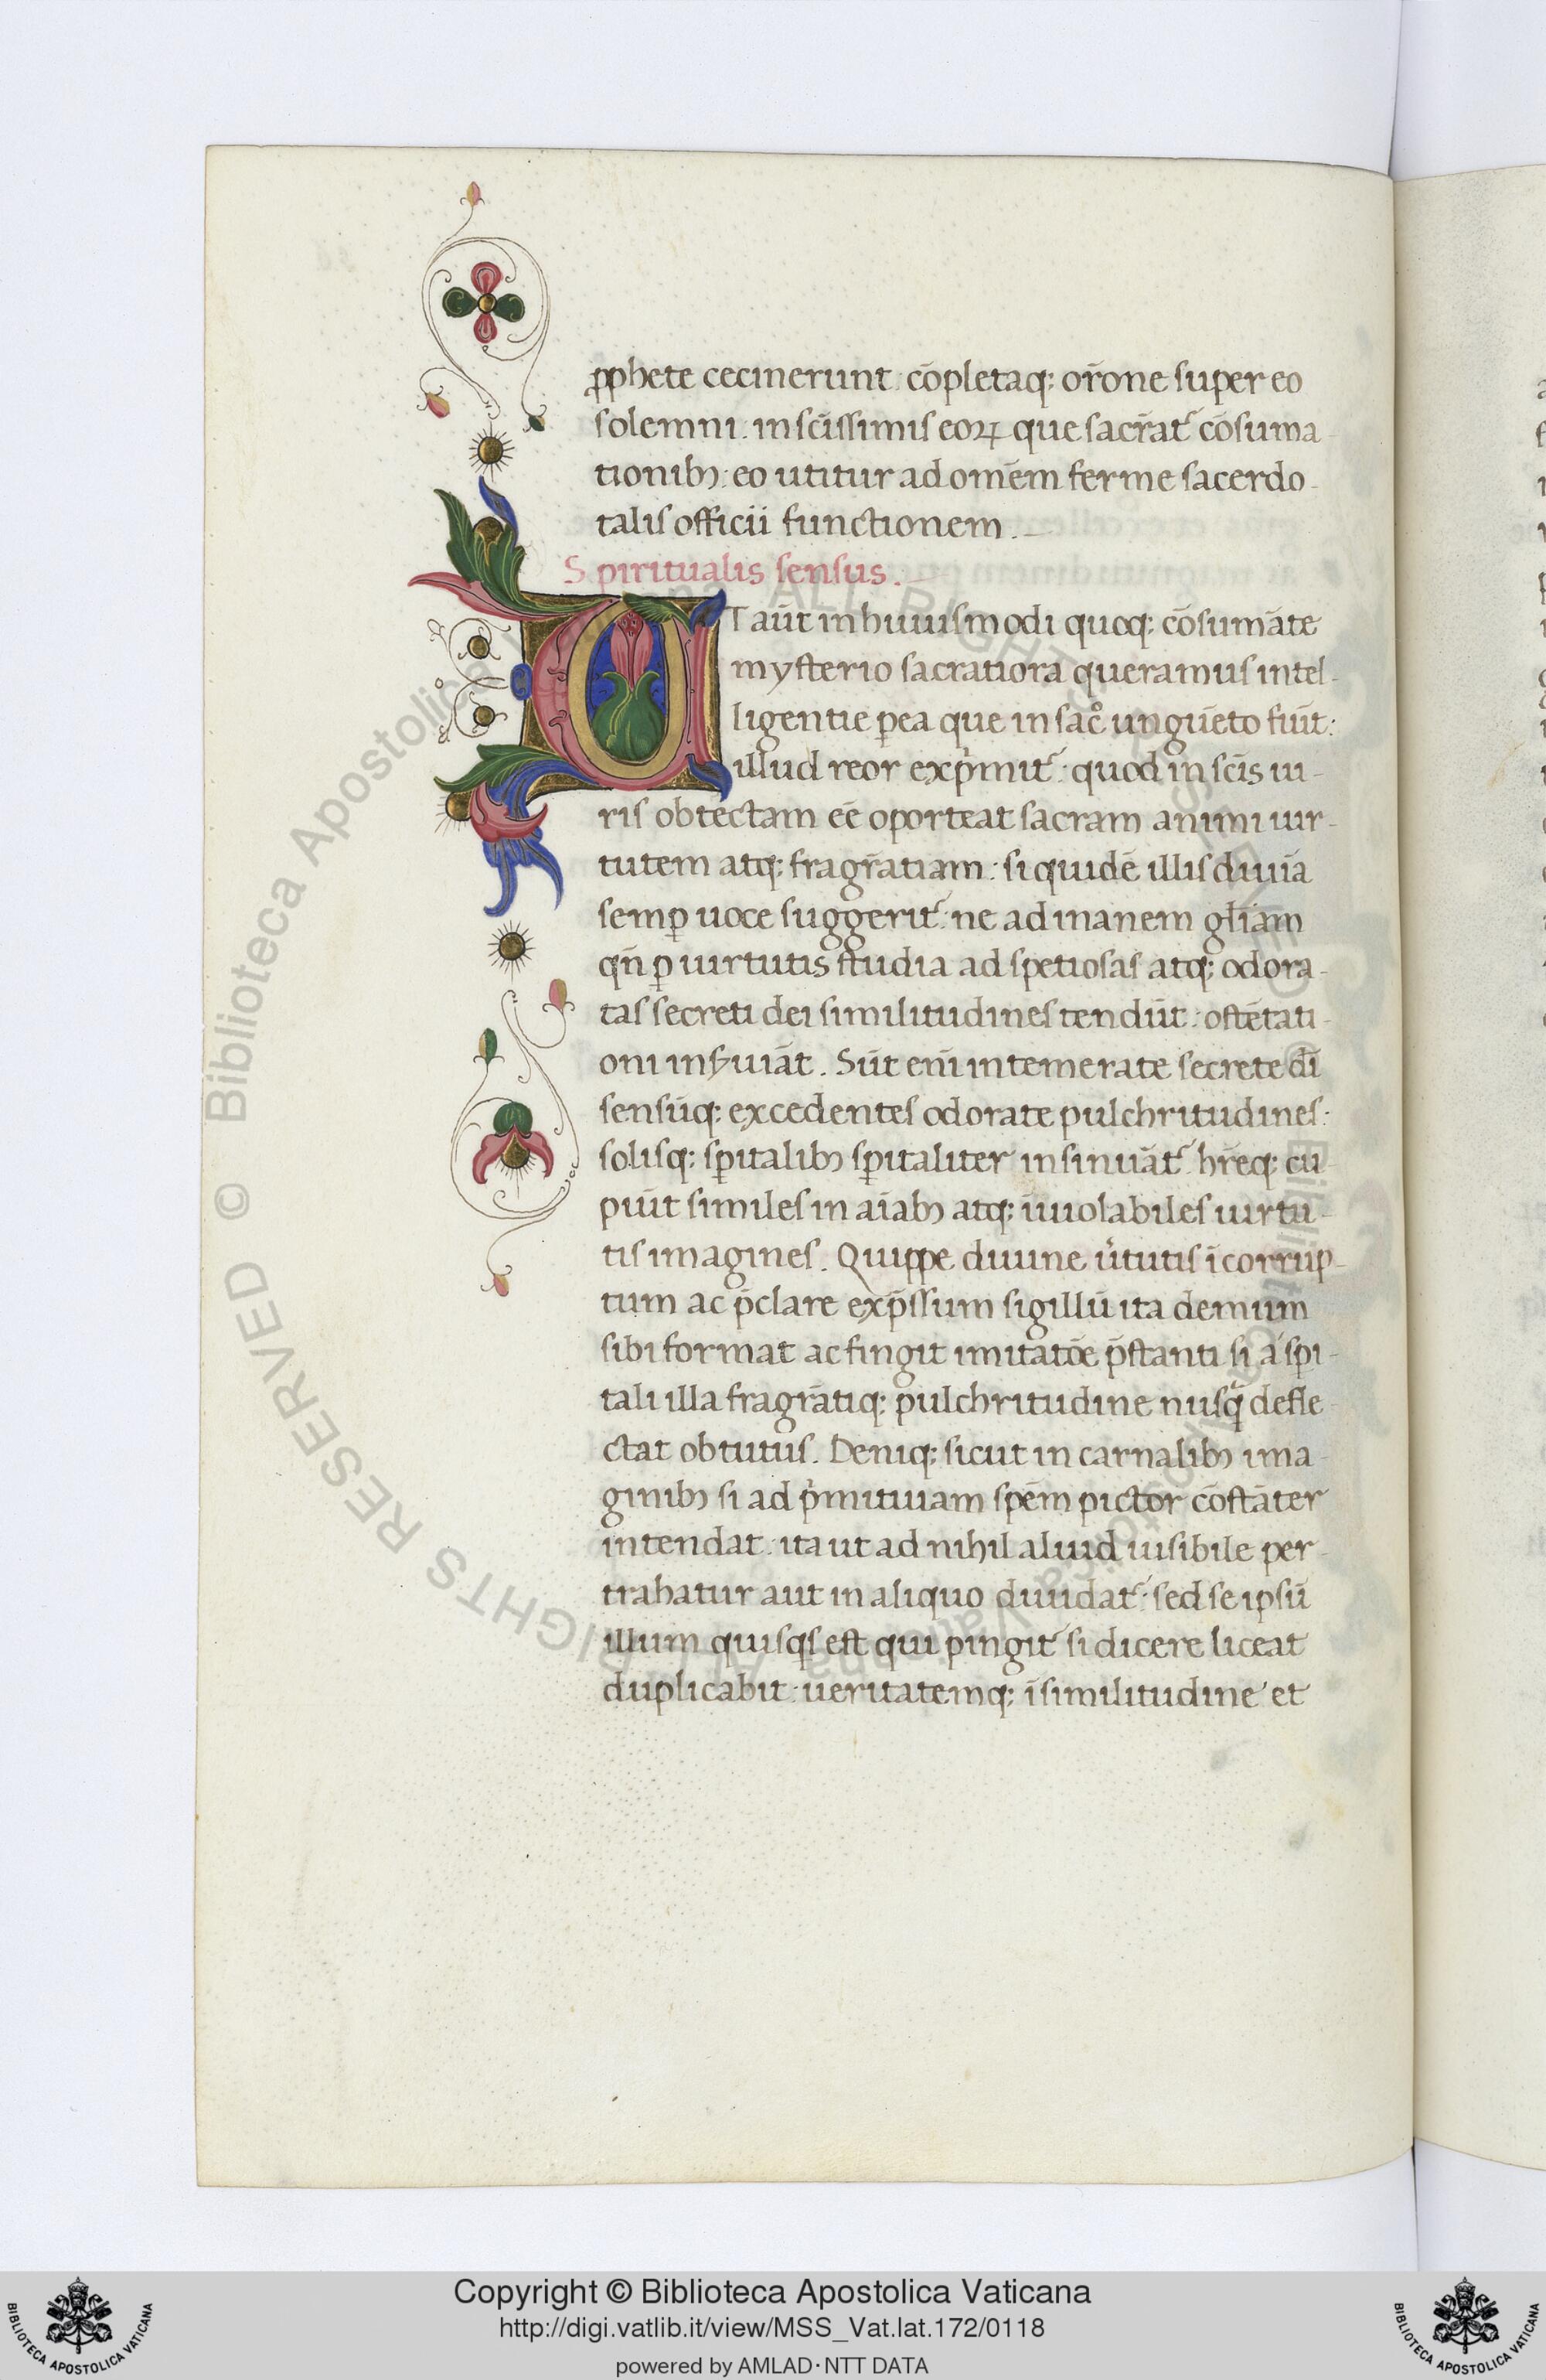 ꝓphete cecinerunt: cōpletaq; or̄one super eo
solemni. in scīssimis eoꝝ que sacr̄at᷑ cōsuma-
tionibꝫ: eo utitur ad omēm ferme sacerdo-
talis officii functionem.
Spiritualis sensus.
UT aūt in huiusmodi quoq; cōsumāte
mysterio sacratiora queramus intel-
ligentie ꝑ ea que in sacͦ unguēto fiūt:
illud reor exp̍mit᷑: quod in scīs ui-
ris obtectam eē oporteat sacram animi uir-
tutem atq; fragr̄atiam: siquidē illis diuīa
semꝑ uoce suggerit᷑: ne ad inanem gl̄iam
qn̄ ꝑ uirtutis studia ad spetiosas atq; odora-
tas secreti dei similitudines tendūt: ostētati-
oni inẜuiāt. Sūt enī intemerate secrete dī
sensūq; excedentes odorate pulchritudines:
solisq; sꝑitalibꝫ sꝑitaliter insinuāt᷑ hr̄eq; cu-
piūt similes in aīabꝫ atq; īuiolabiles uirtu-
tis imagines. Quippe diuine u̍tutis īcorrup-
tum ac p̄clare exp̄ssum sigillū ita demum
sibi format ac fingit imitatōe p̄stanti si a spi-
tali illa fragrātiq; pulchritudine nusq̄ defle-
ctat obtutus. Deniq; sicut in carnalibꝫ ima-
ginibꝫ si ad p̍mitiuam spēm pictor cōstāter
intendat: ita ut ad nihil aliud uisibile per-
trahatur aut in aliquo diuidat᷑: sed se ipsū
illum quisqs est qui pingit᷑ si dicere liceat
duplicabit: ueritatemq; ī similitudine et
Copyright © Biblioteca Apostolica Vaticana
http://digi.vatlib.it/view/MSS_Vat.lat.172/0118
powered by AMLAD·NTT DATA
BIBLIOTECA APOSTOLICA VATICANA
BIBLIOTECA APOSTOLICA VATICANA
© Biblioteca Apostolica Vaticana ALL RIGHTS RESERVED